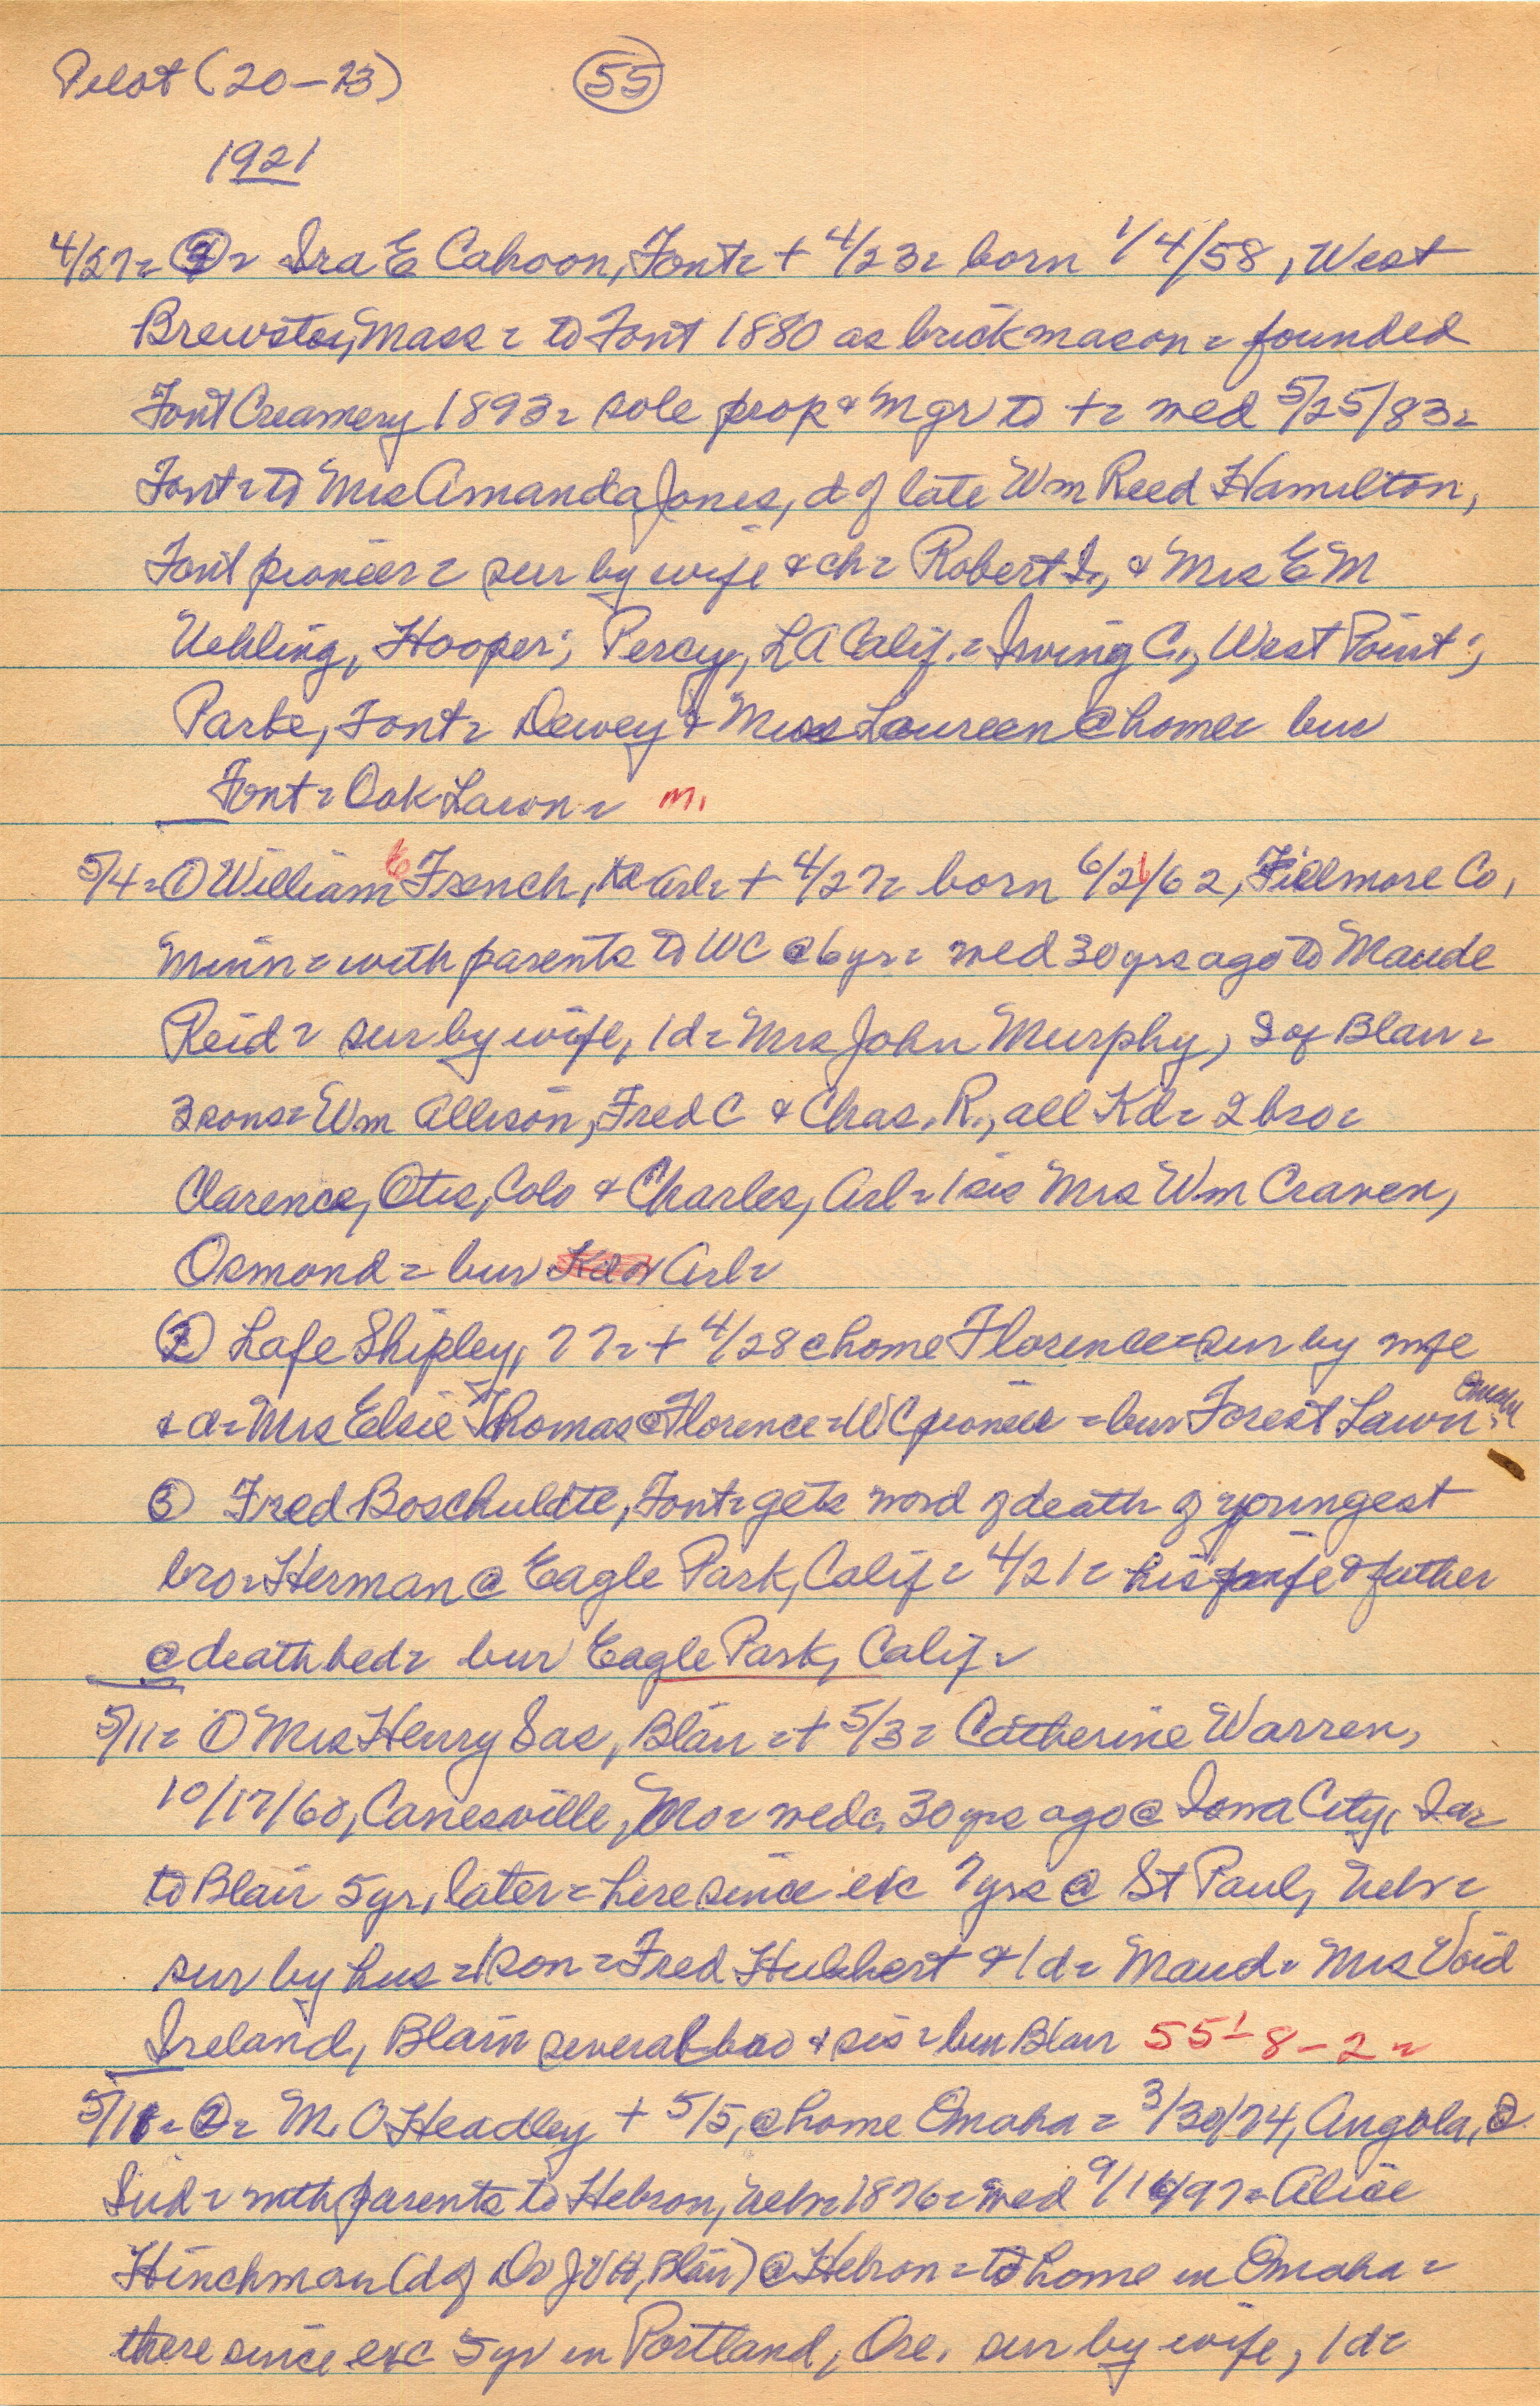 Pilot (20-23) 55
1921
4/27= = Ira E Cahoon, Font= + 4/23= born 1/4/58, West
Brewster, Mass= to Font 1880 as brickmason= founded
Font Creamery 1893= sole prop & mgr to += wed 5/25/83=
Font= to Mrs Amanda Jones, d of late Wm Reed Hamilton,
Font pioneer= sur by wife & ch= Robert I., & Mrs E M
Uehling, Hooper; Percy, LA Calif.= Irving C., West Point;
Parke, Font= Dewey & Miss Laureen @ home= bur
Font= Oak Lawn= m.
5/4= ① William French, Arl= + 4/27= born 6/21/62, Fillmore Co,
Minn= with parents to WC @ 6 yr= wed 30 yrs ago to Maude
Reid= sur by wife, 1 d= Mrs John Murphy, S of Blair=
3 sons= Wm Allison, Fred C & Chas. R., all Kd= 2 bro=
Clarence, Otis, Colo & Charles, Arl= 1 sis Mrs Wm Craven,
Osmond= bur Arl=
② Lafe Shipley, 77= + 4/28 @ home Florence= sur by wife
& d= Mrs Elsie Thomas @ Florence= WC pioneer= bur Forest Lawn= Omaha
③ Fred Boschuldte, Font= gets word of death of youngest
bro= Herman @ Eagle Park, Calif= 4/21= his wife & father
@ deathbed= bur Eagle Park, Calif=
5/11= ① Mrs Henry Sas, Blair= + 5/3= Catherine Warren,
10/17/60, Canesville, Mo= wed c. 30 yrs ago @ Iowa City, Ia=
to Blair 5 yr, later= here since exc 7 yrs @ St Paul, Nebr=
sur by hus= 1 son= Fred Hubbert & 1 d= Maud= Mrs Void
Ireland, Blair several bro & sis= bur Blair 55-8-2=
5/11= ②= M. O Headley + 5/5, @ home Omaha= 3/30/74, Angola,
Ind= with parents to Hebron, Nebr= 1876= wed 9/16/97= Alice
Hinchman (d of Dr J V H, Blair) @ Hebron= to home in Omaha=
there since exc 5 yr in Portland, Ore. sur by wife, 1 d=